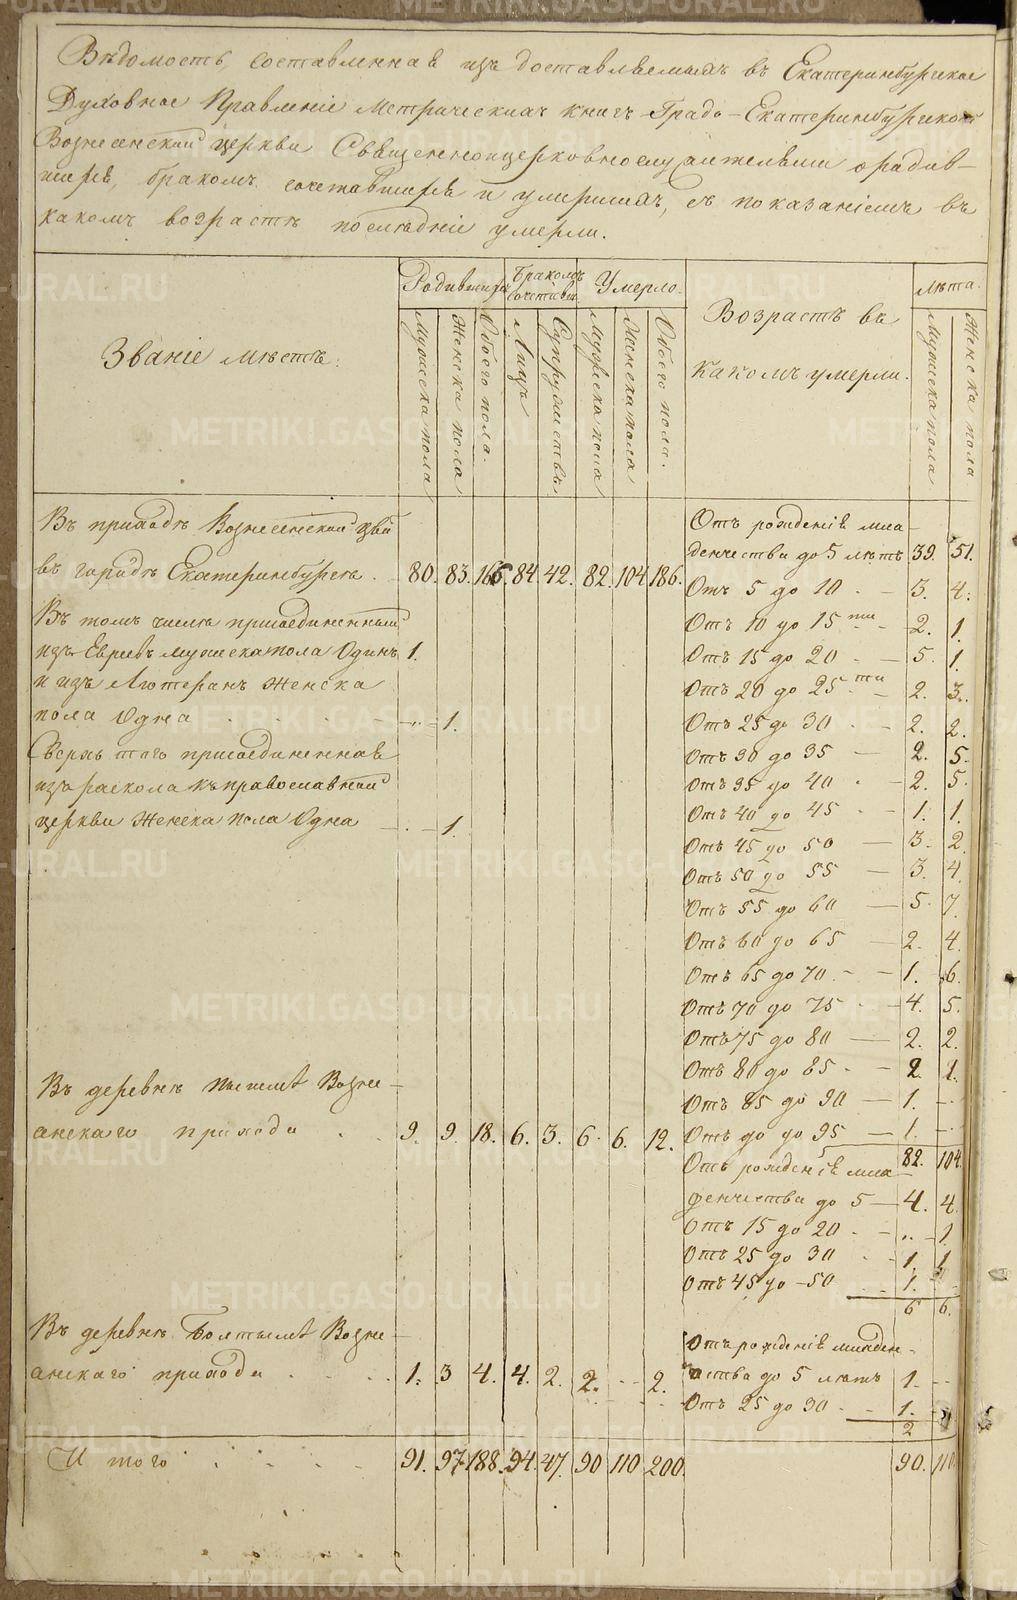 Вѣдомость, составленная изъ доставляемыхъ въ Екатеринбургское
Духовное Правленіе Метрическихъ книгъ Градо-Екатеринбургской
Вознесенской церкви Священноцерковнослужителями о родив-
шихся, бракомъ сочетавшихся и умершихъ, съ показаніемъ въ
какомъ возрастѣ послѣдніе умерли.
Званіе мѣстъ.
Родившихся
Мужеска пола
Женска пола
Обоего пола.
Бракомъ сочетавш.
Лицъ
Супружествъ
Умерло.
Мужеска пола
Женска пола
Обоего пола.
Возрастъ въ
какомъ умерли.
Лѣта.
Мужеска пола
Женска пола
Въ приходѣ Вознесенской цкви
въ городѣ Екатеринбургѣ. 80. 83. 166. 84. 42. 82. 104 186.
Въ томъ числѣ присоединенный
изъ Евреевъ мужеска пола Одинъ 1.
и изъ Лютеранъ Женска
пола Одна - „ - 1.
Сверхъ того присоединенная
изъ раскола къ православной
церкви Женска пола Одна - 1.
Въ деревнѣ Пышмѣ Возне-
сенскаго прихода 9. 9. 18. 6. 3. 6. 6. 12.
Въ деревнѣ Балтымѣ Возне-
сенскаго прихода 1. 3 4. 4. 2. 2. - - 2.
И того 91. 97 188. 94. 47. 90 110 200.
Отъ рожденія мла-
денчества до 5 лѣтъ 39. 51.
Отъ 5 до 10 - 3. 4.
Отъ 10 до 15ти - 2. 1.
Отъ 15 до 20 - 5. 1.
Отъ 20 до 25ти - 2. 3.
Отъ 25 до 30 - 2. 2.
Отъ 30 до 35 - 2. 5.
Отъ 35 до 40 - 2. 5.
Отъ 40 до 45 - 1. 1.
Отъ 45 до 50 - 3. 2.
Отъ 50 до 55 - 3. 4.
Отъ 55 до 60 - 5. 7.
Отъ 60 до 65 - 2. 4.
Отъ 65 до 70 - 1. 6.
Отъ 70 до 75 - 4. 5.
Отъ 75 до 80 - 2. 2.
Отъ 80 до 85 - 2. 1.
Отъ 85 до 90 - 1. -
Отъ до до 95 - 1. -
82. 104.
Отъ рожденія мла-
денчества до 5 - 4. 4.
Отъ 15 до 20 - „ - 1
Отъ 25 до 30 - 1. 1
Отъ 45 до 50 1. -
6 6.
Отъ рожденія младен-
чества до 5 лѣтъ 1. -
Отъ 25 до 30 - 1. -
2
90. 110.
METRIKI.GASO-URAL.RU